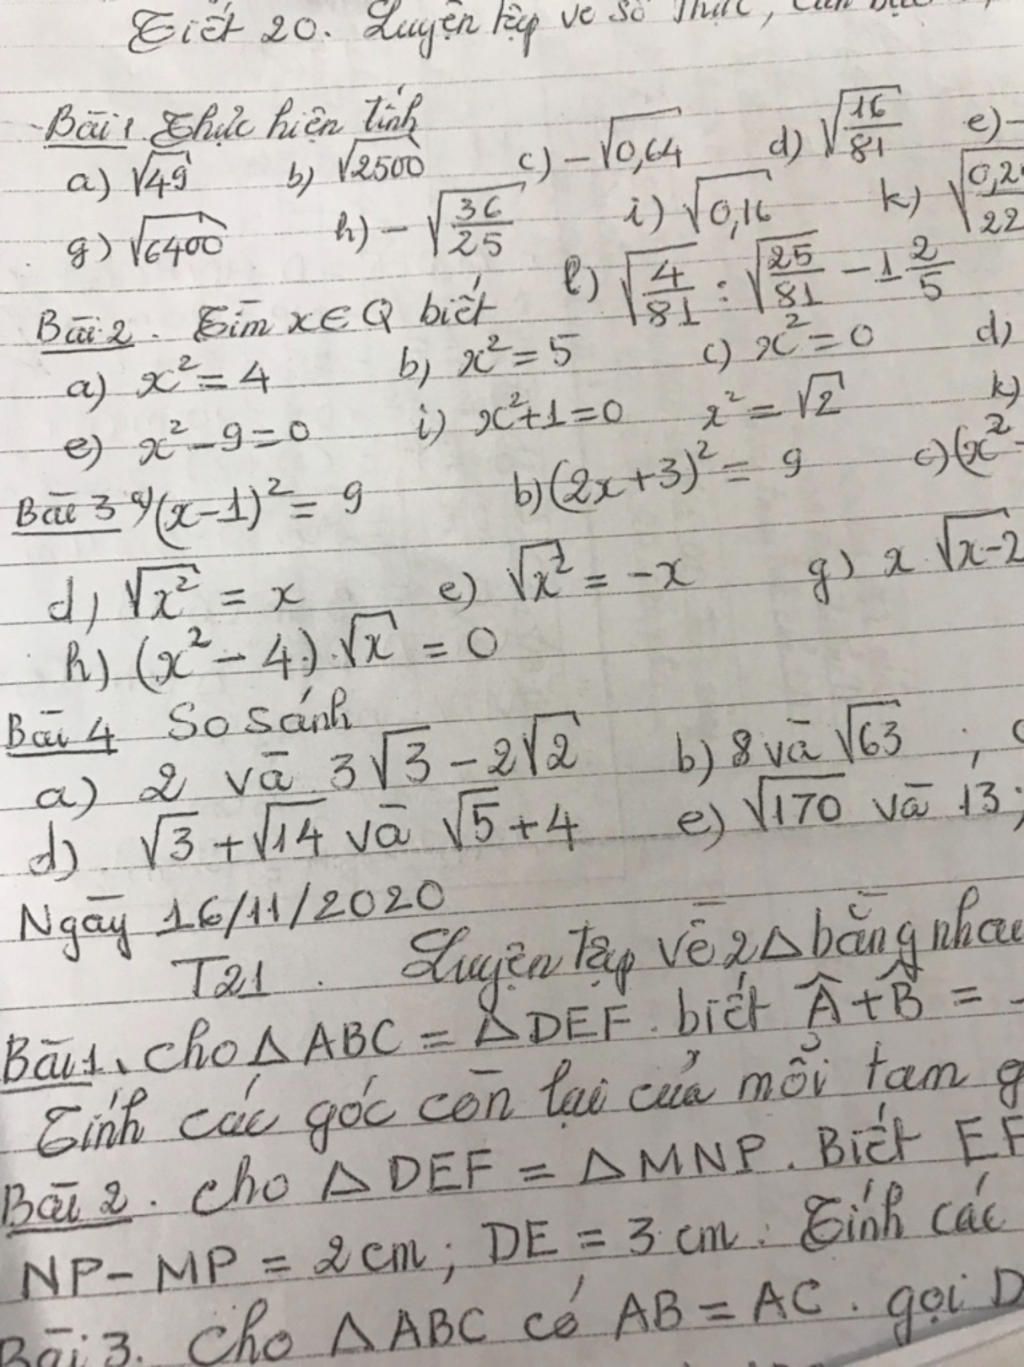 Tiết 20. Luyện tập về Số Thực, Căn bậc
Bài 1 Thực hiện tính
a) √49 b) √2500 c) -√0,64 d) √(16/81) e) -
g) √6400 h) -√(36/25) i) √0,16 k) √(0,2/22
l) √(4/81) : √(25/81) - 1 2/5
Bài 2. Tìm x∈Q biết
a) x² = 4 b) x² = 5 c) x² = 0 d)
e) x² - 9 = 0 i) x² + 1 = 0 x² = √2 k)
Bài 3 a) (x-1)² = 9 b) (2x+3)² = 9 c) (x² -
d) √x² = x e) √x² = -x g) x √x-2
h) (x² - 4).√x = 0
Bài 4 So sánh
a) 2 và 3√3 - 2√2 b) 8 và √63 ;
d) √3 + √14 và √5 + 4 e) √170 và 13 ;
Ngày 16/11/2020
T21. Luyện tập về 2Δ bằng nhau
Bài 1. Cho ΔABC = ΔDEF. biết Â + B̂ =
Tính các góc còn lại của mỗi tam g
Bài 2. Cho ΔDEF = ΔMNP. Biết EF
NP - MP = 2cm ; DE = 3 cm. Tính các
Bài 3. Cho ΔABC có AB = AC. gọi D